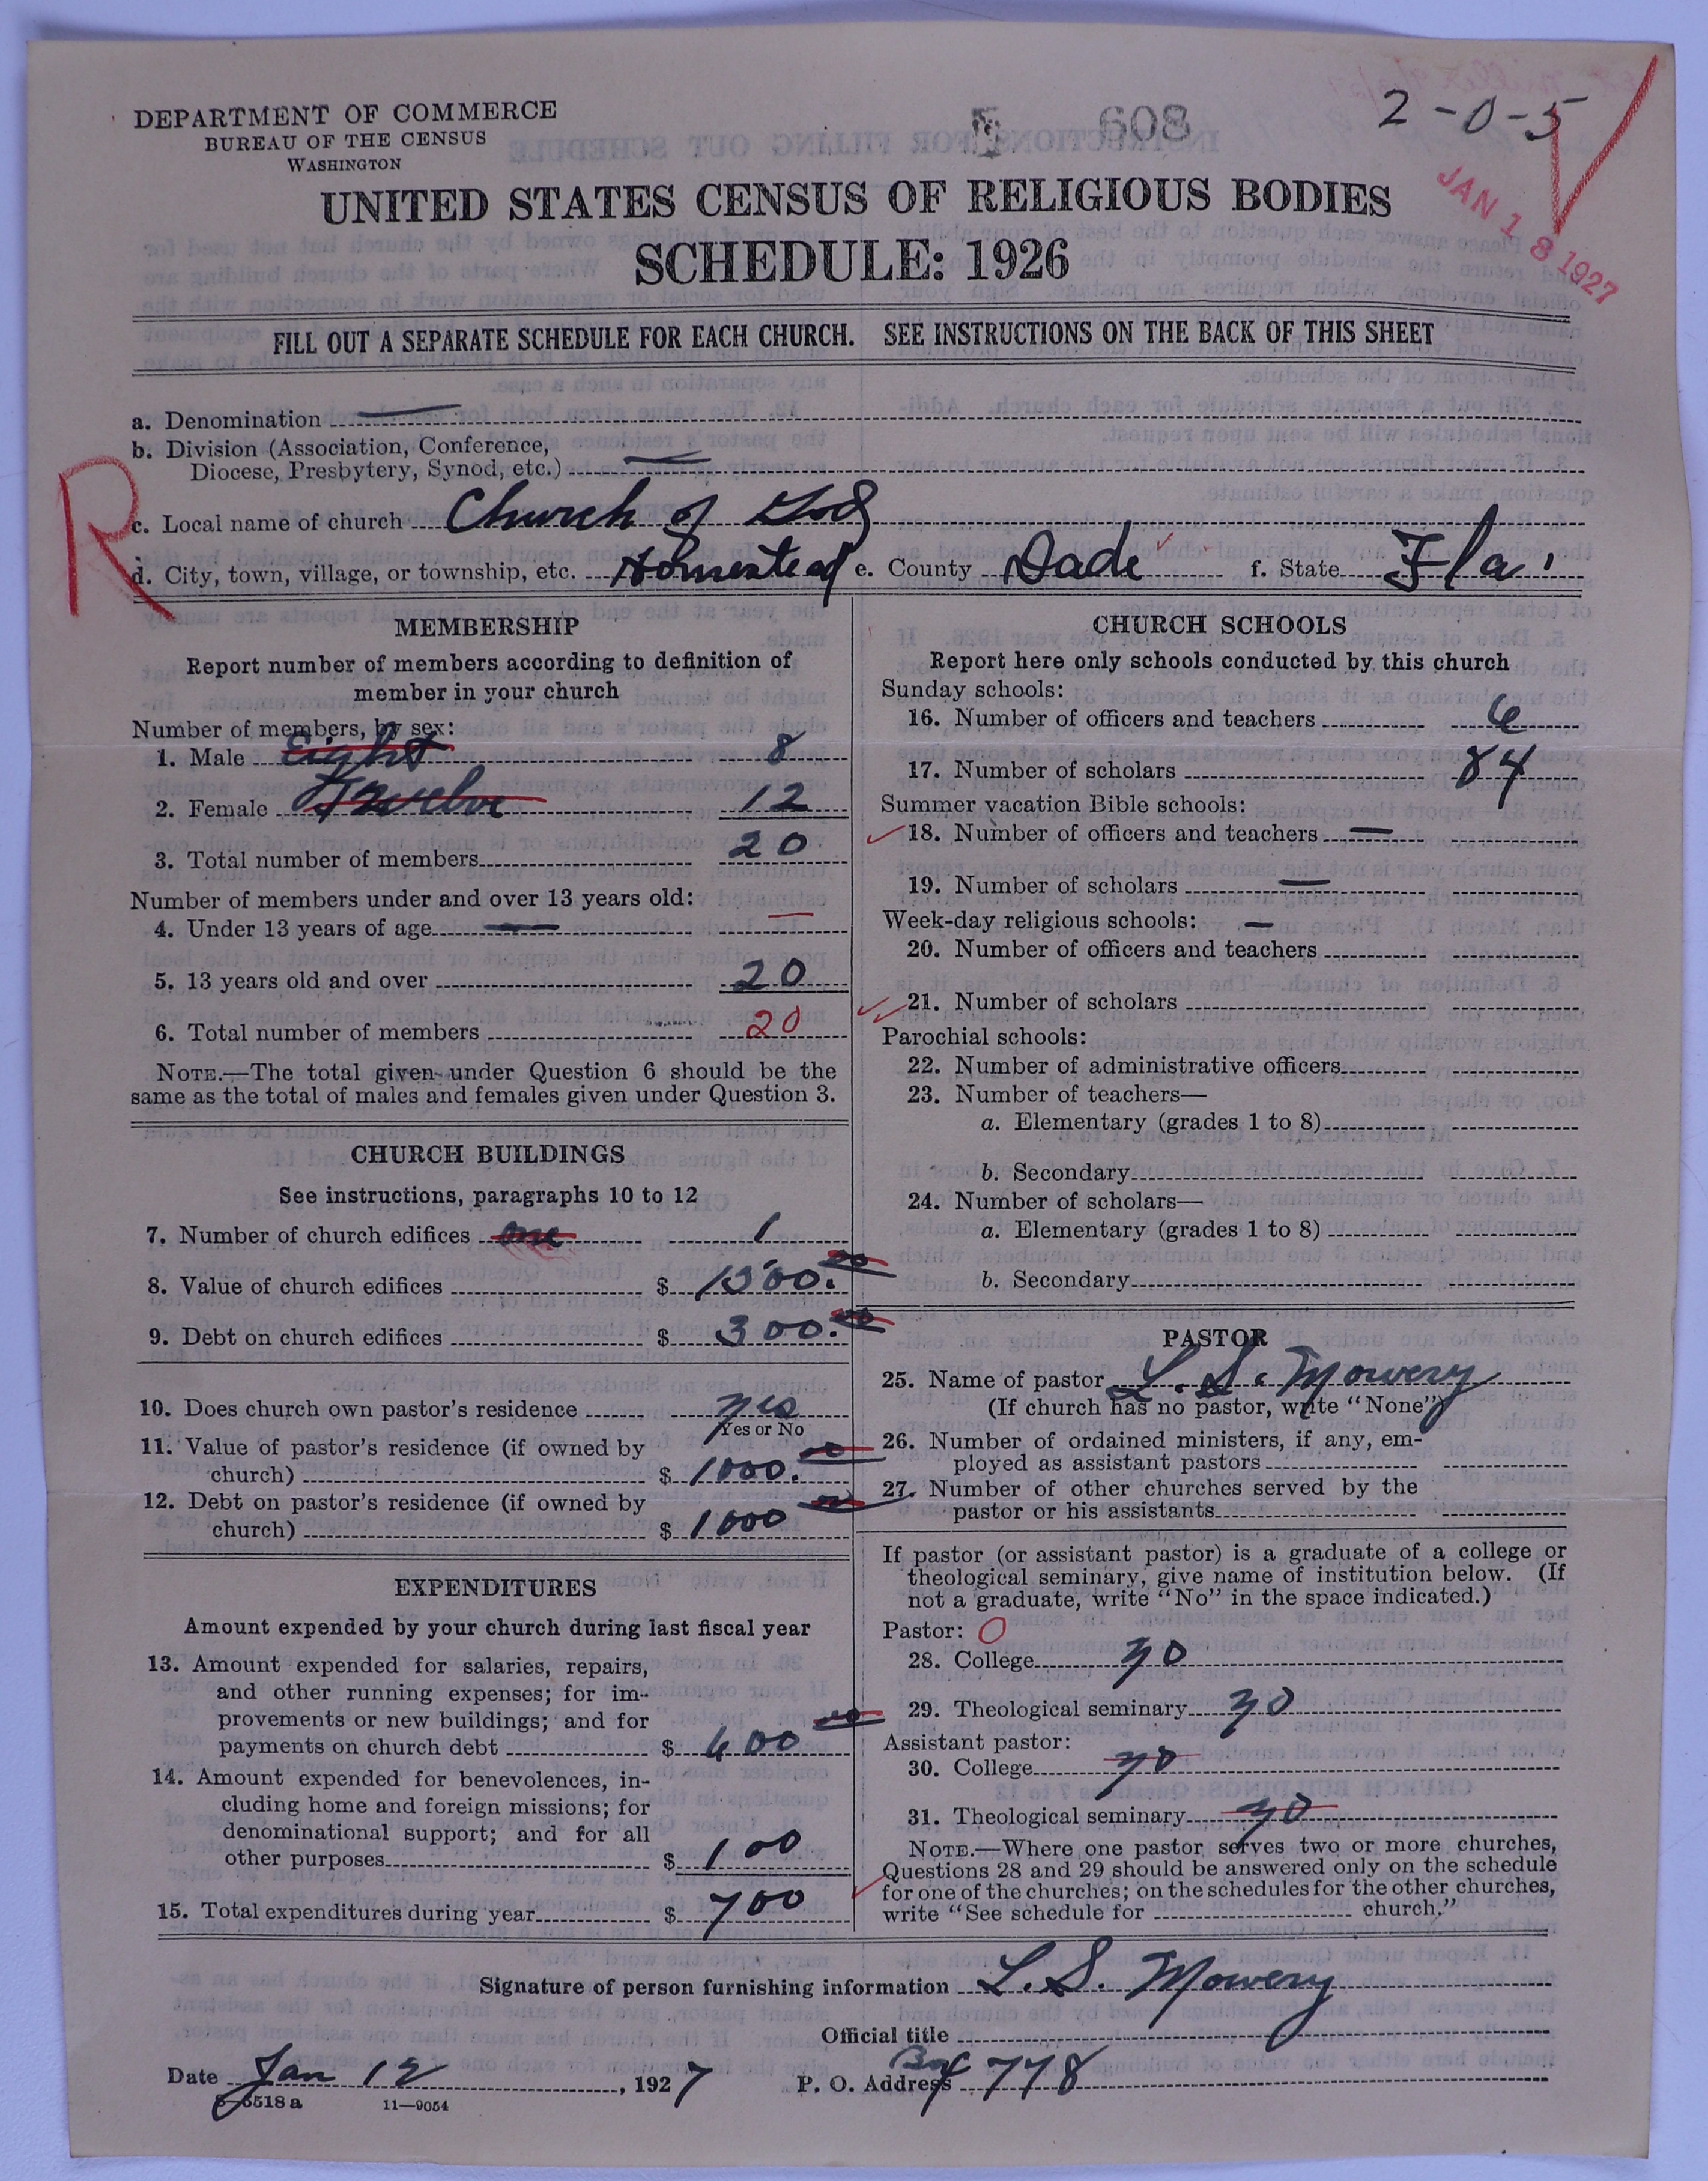 DEPARTMENT OF COMMERCE
BUREAU OF THE CENSUS
WASHINGTON
608
2-0-5
JAN 18 1927
UNITED STATES CENSUS OF RELIGIOUS BODIES
SCHEDULE: 1926
FILL OUT A SEPARATE SCHEDULE FOR EACH CHURCH. SEE INSTRUCTIONS ON THE BACK OF THIS SHEET
a. Denomination
b. Division (Association, Conference,
Diocese, Presbytery, Synod, etc.)
R
c. Local name of church Church of God
d. City, town, village, or township, etc. Homestead e. County Dade f. State Fla.
MEMBERSHIP
Report number of members according to definition of
member in your church
Number of members, by sex:
1. Male Eight 8
2. Female Twelve 12
3. Total number of members 20
Number of members under and over 13 years old:
4. Under 13 years of age —
5. 13 years old and over 20
6. Total number of members 20
NOTE.—The total given under Question 6 should be the
same as the total of males and females given under Question 3.
CHURCH BUILDINGS
See instructions, paragraphs 10 to 12
7. Number of church edifices one 1
8. Value of church edifices $ 1500.00
9. Debt on church edifices $ 300.00
10. Does church own pastor's residence yes
Yes or No
11. Value of pastor's residence (if owned by
church) $ 1000.00
12. Debt on pastor's residence (if owned by
church) $ 1000 00
EXPENDITURES
Amount expended by your church during last fiscal year
13. Amount expended for salaries, repairs,
and other running expenses; for im-
provements or new buildings; and for
payments on church debt $ 600 00
14. Amount expended for benevolences, in-
cluding home and foreign missions; for
denominational support; and for all
other purposes $ 100
15. Total expenditures during year $ 700
CHURCH SCHOOLS
Report here only schools conducted by this church
Sunday schools:
16. Number of officers and teachers 6
17. Number of scholars 84
Summer vacation Bible schools:
18. Number of officers and teachers —
19. Number of scholars —
Week-day religious schools: —
20. Number of officers and teachers
21. Number of scholars
Parochial schools:
22. Number of administrative officers
23. Number of teachers—
a. Elementary (grades 1 to 8)
b. Secondary
24. Number of scholars—
a. Elementary (grades 1 to 8)
b. Secondary
PASTOR
25. Name of pastor L. S. Mowery
(If church has no pastor, write "None")
26. Number of ordained ministers, if any, em-
ployed as assistant pastors
27. Number of other churches served by the
pastor or his assistants
If pastor (or assistant pastor) is a graduate of a college or
theological seminary, give name of institution below. (If
not a graduate, write "No" in the space indicated.)
Pastor: 0
28. College no
29. Theological seminary no
Assistant pastor:
30. College no
31. Theological seminary no
NOTE.—Where one pastor serves two or more churches,
Questions 28 and 29 should be answered only on the schedule
for one of the churches; on the schedules for the other churches,
write "See schedule for church."
Signature of person furnishing information L. S. Mowery
Official title
Date Jan 12, 1927 P. O. Address Box 778
11—9054